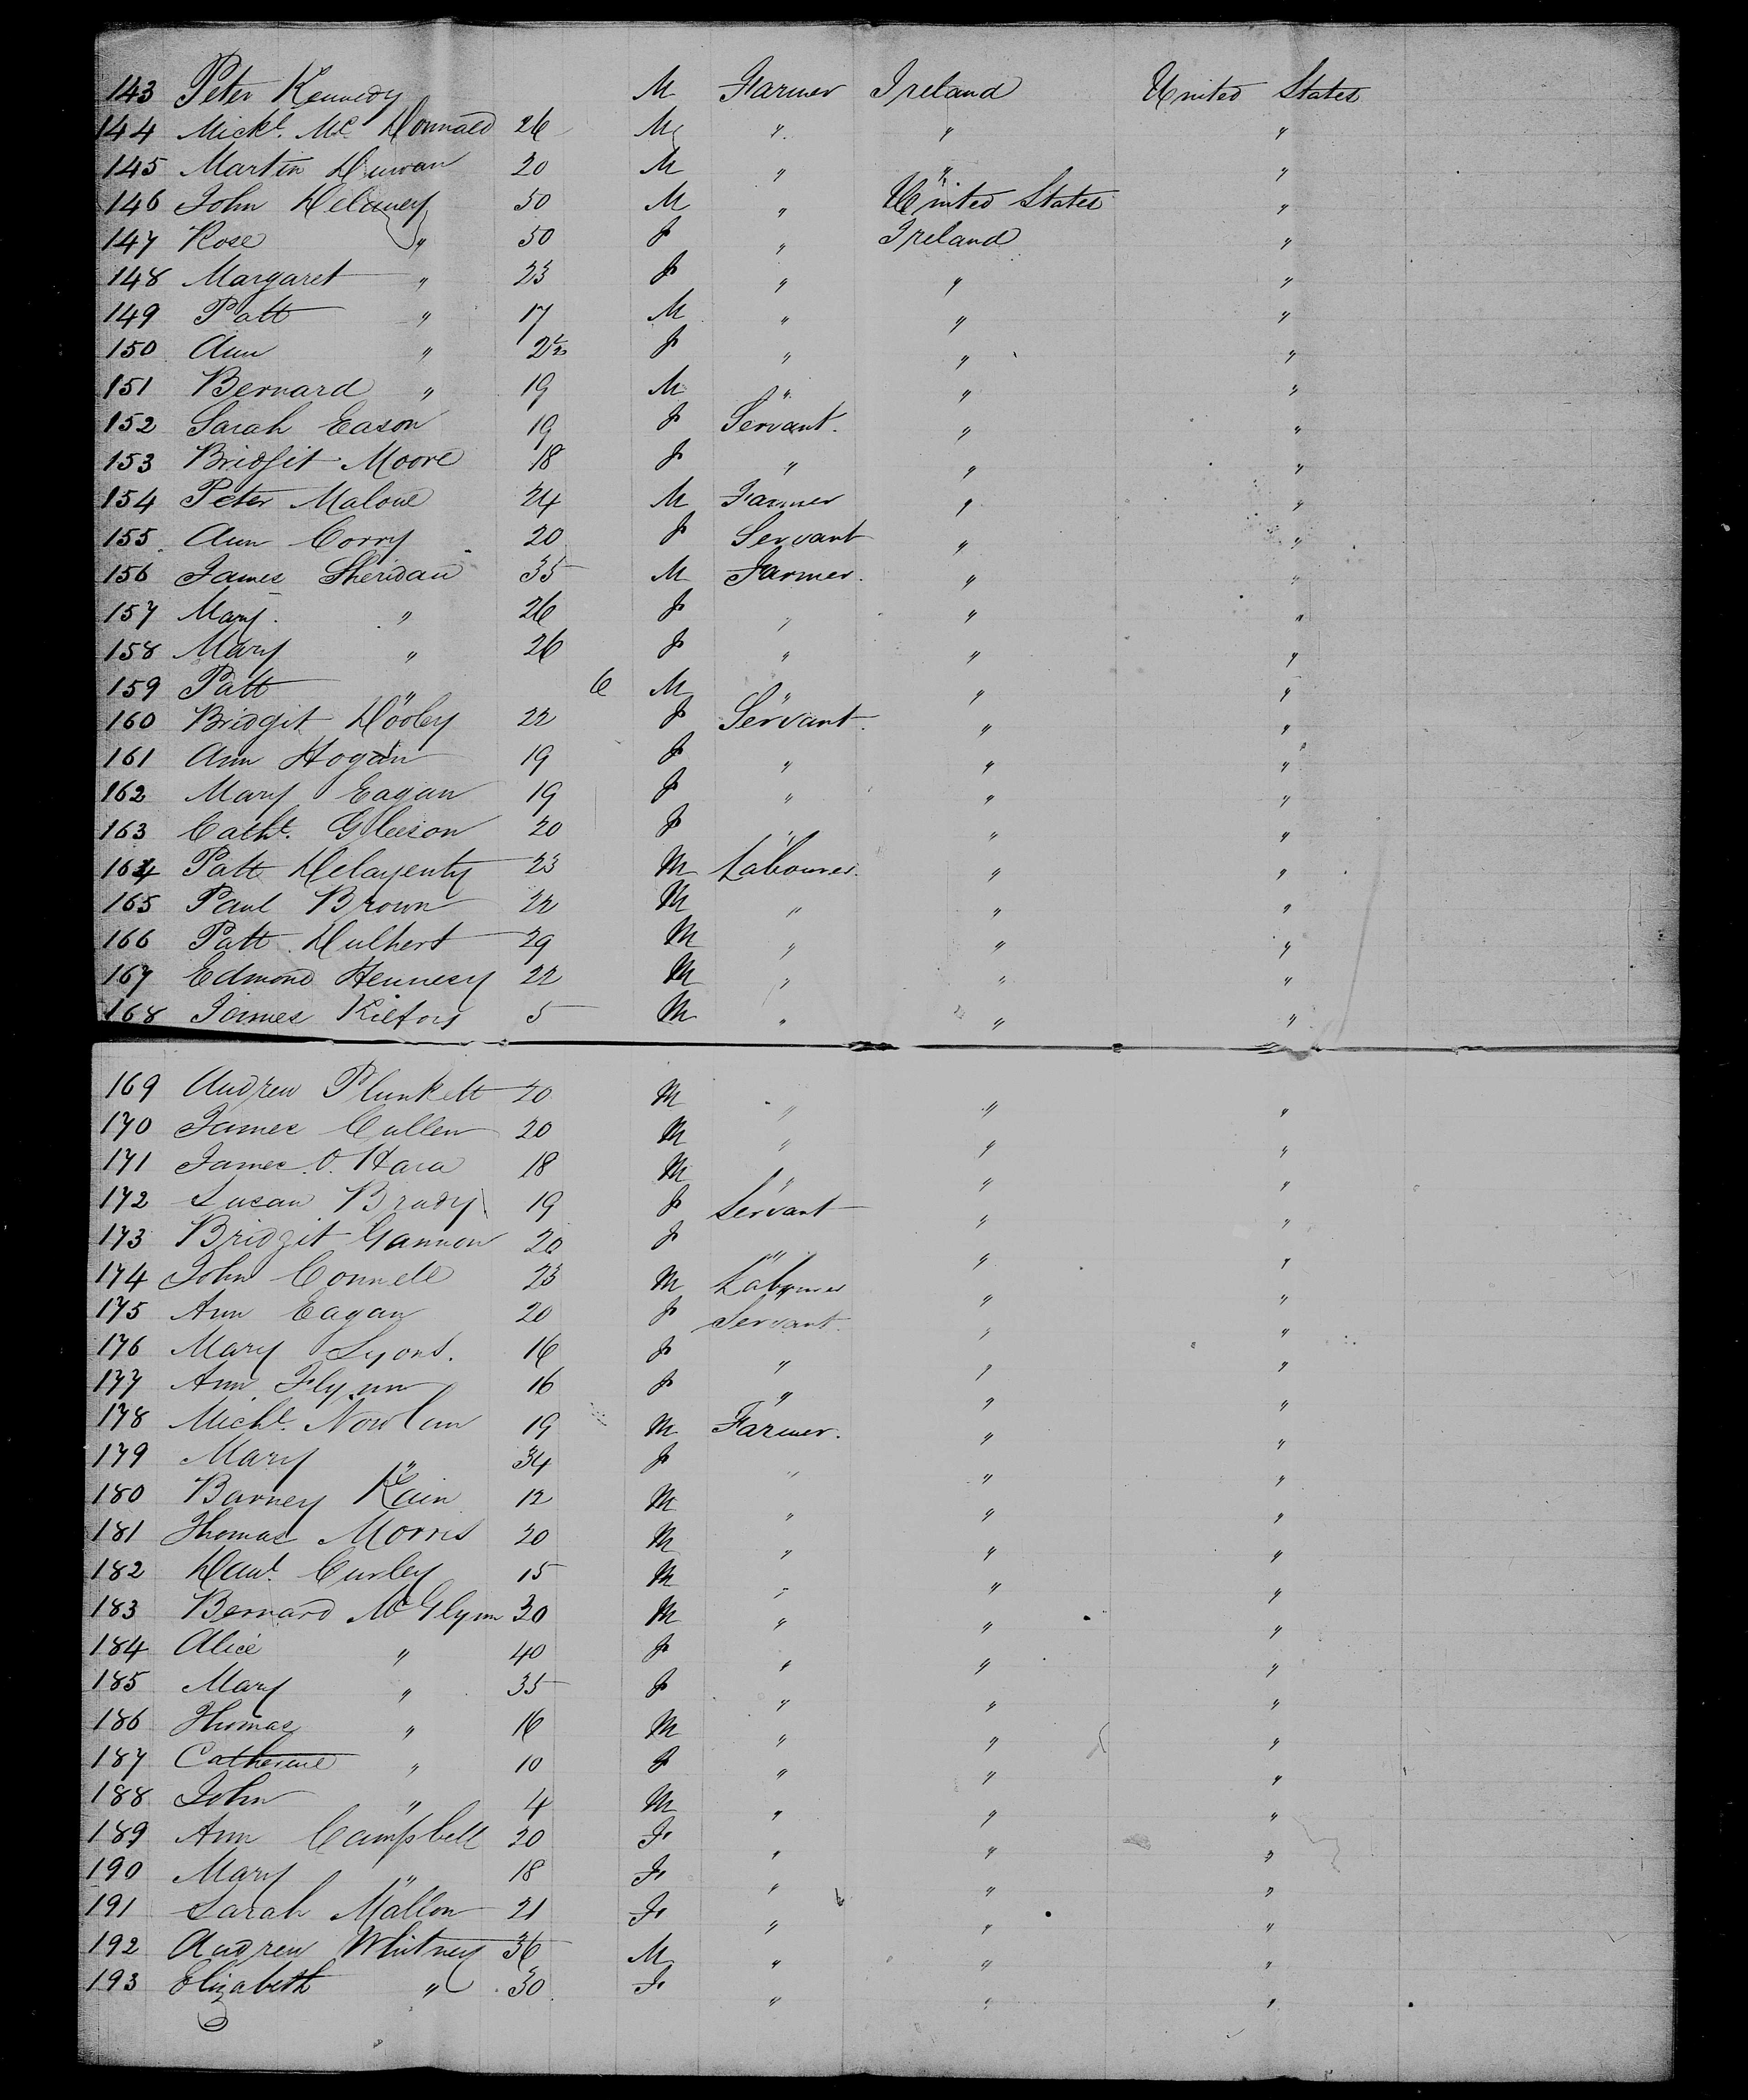 143 Peter Kennedy M Farmer Ireland United States
144 Mickl. Mc Donnald 26 M " " "
145 Martin 20 M " " "
146 John Delaney 50 M " United States "
147 Rose " 50 F " Ireland "
148 Margaret " 23 F " " "
149 Patt " 17 M " " "
150 Ann " F " " "
151 Bernard " 19 M " " "
152 Sarah Eason 19 F Servant. " "
153 Bridgit Moore 18 F " " "
154 Peter Malone 24 M Farmer " "
155 Ann Corry 20 F Servant " "
156 James Sheridan 35 M Farmer. " "
157 Mary " 26 F " " "
158 Mary " 26 F " " "
159 Patt " 6 M " " "
160 Bridgit Dooley 22 F Servant. " "
161 Ann Hogan 19 F " " "
162 Mary Eagan 19 F " " "
163 Catht. Gleeson 20 F " " "
164 Patt 23 M Labourer. " "
165 Paul Brown 22 M " " "
166 Patt Dulhert 29 M " " "
167 Edmond Hennesy 22 M " " "
168 James 5 M " " "
169 Andrew Plunkett 20 M " " "
170 James Cullen 20 M " " "
171 James O. Hara 18 M " " "
172 Susan Brady 19 F Servant " "
173 Bridgit Gannon 20 F " " "
174 John Connell 23 M Labourer " "
175 Ann Eagan 20 F Servant " "
176 Mary Lyons. 16 F " " "
177 Ann Flynn 16 F " " "
178 Michl. Nowlan 19 M Farmer. " "
179 Mary " 34 F " " "
180 Barney Kain 12 M " " "
181 Thomas Morris 20 M " " "
182 Danl. Curley 15 M " " "
183 Bernard McGlynn 30 M " " "
184 Alice " 40 F " " "
185 Mary " 35 F " " "
186 Thomas " 16 M " " "
187 Catherine " 10 F " " "
188 John " 4 M " " "
189 Ann Campbell 20 F " " "
190 Mary " 18 F " " "
191 Sarah Mallon 21 F " " "
192 Andrew Whitney 36 M " " "
193 Elizabeth " 30 F " " "